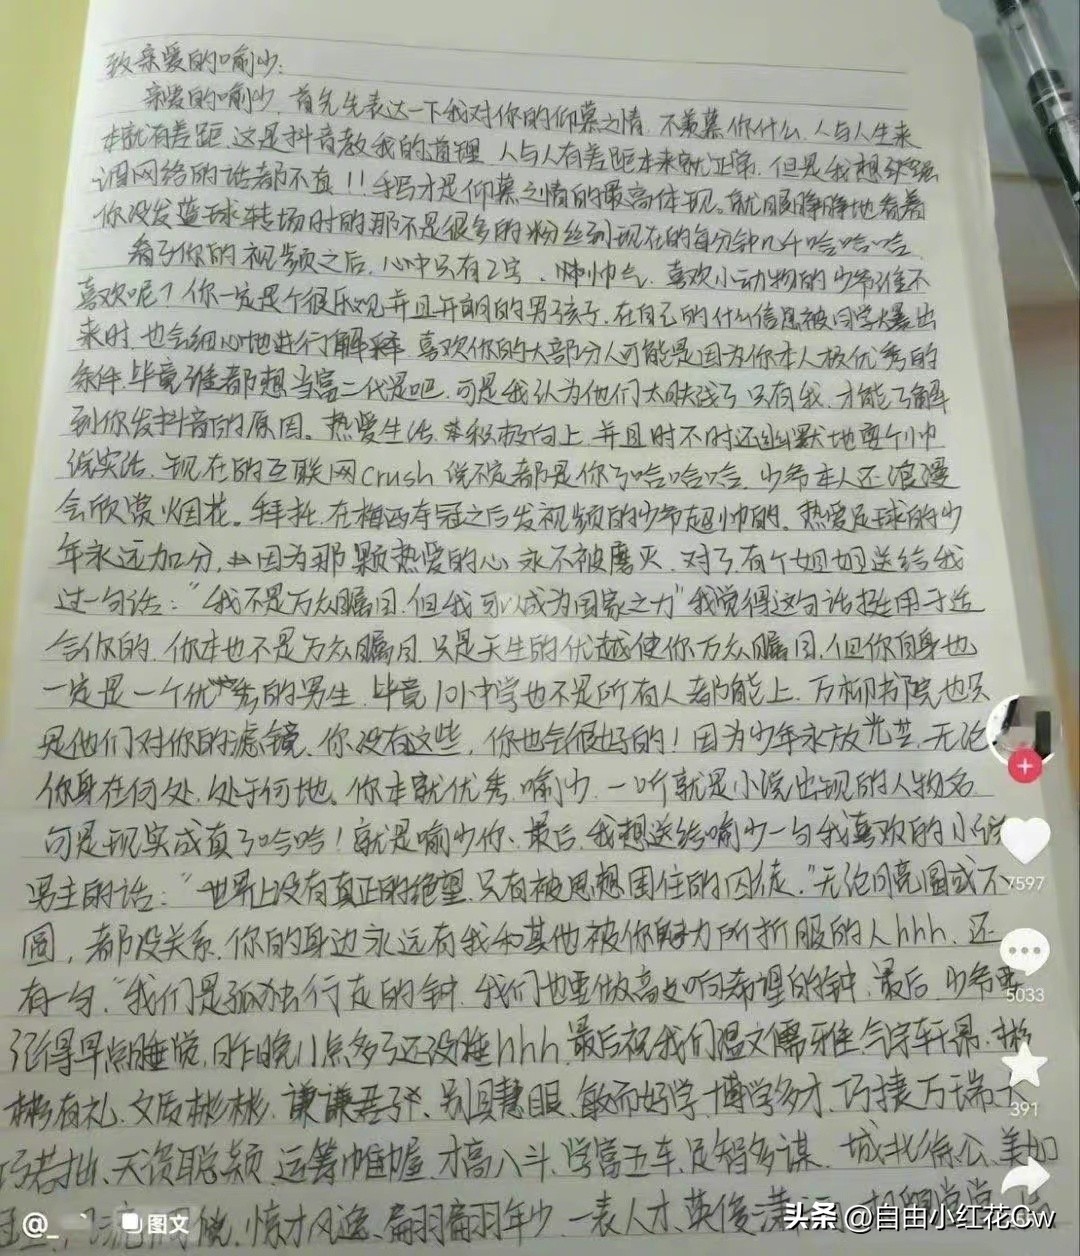 致亲爱的喻少:
亲爱的喻少,首先先表达一下我对你的仰慕之情,不羡慕你什么,人与人生来
本就有差距,这是抖音教我的道理,人与人有差距本来就正常,但是我想
网络的话都不直!!手写才是仰慕之情的最高体现。就眼睁睁地看着
你没发篮球转场时的那不是很多的粉丝到现在的每分钟几千哈哈哈
看了你的视频之后,心中只有2字、帅气,喜欢小动物的少爷谁不
喜欢呢?你一定是个很乐观并且开朗的男孩子,在自己的什么信息被同学爆出
来时,也会细心地进行解释,喜欢你的大部分人可能是因为你本人极优秀的
条件,毕竟谁都想当富二代是吧,可是我认为他们太肤浅了,只有我,才能了解
到你发抖音的原因。热爱生活,积极向上,并且时不时还幽默地耍个
说实话,现在的互联网crush说不定都是你了哈哈哈,少爷本人还浪漫
会欣赏烟花。拜托,在梅西夺冠之后发视频的少爷超帅的。热爱足球的少
年永远加分,因为那颗热爱的心永不被磨灭,对了有个姐姐送给我
过一句话:“我不是万众瞩目,但我可以成为国家之力”我觉得这句话挺用于适
合你的,你本也不是万众瞩目,只是天生的优越使你万众瞩目,但你自身也
一定是一个优秀的男生,毕竟101中学也不是所有人都能上,万柳书院也只
是他们对你的滤镜,你没有这些,你也会很好的!因为少年永放光芒,无论
你身在何处,处于何地。你本就优秀,喻少,一听就是小说出现的人物名
可是现实成真了哈哈!就是喻少你、最后,我想送给喻少一句我喜欢的小说
男主的话:“世界上没有真正的绝望,只有被思想困住的囚徒,”无论月亮圆或不
圆,都没关系,你的身边永远有我和其他被你魅力所折服的人hhh,还
有一句,“我们是孤独行走的钟,我们也要做高处响希望的钟,最后,少爷要
记得早点睡觉,昨晚11点多了还没睡hhh,最后祝我们温文儒雅,气宇轩昂,彬
彬有礼、文质彬彬,谦谦君子,别具慧眼、敏而好学,博学多才,巧捷万端,大
巧若拙、天资聪颖,运筹帷幄,才高八斗,学富五车,足智多谋,城北徐公、美如
冠玉,风流倜傥,惊才风逸、翩翩年少,一表人才、英俊潇洒,相貌堂堂
7597
5033
391
@_ 图文
头条 @自由小红花Cw